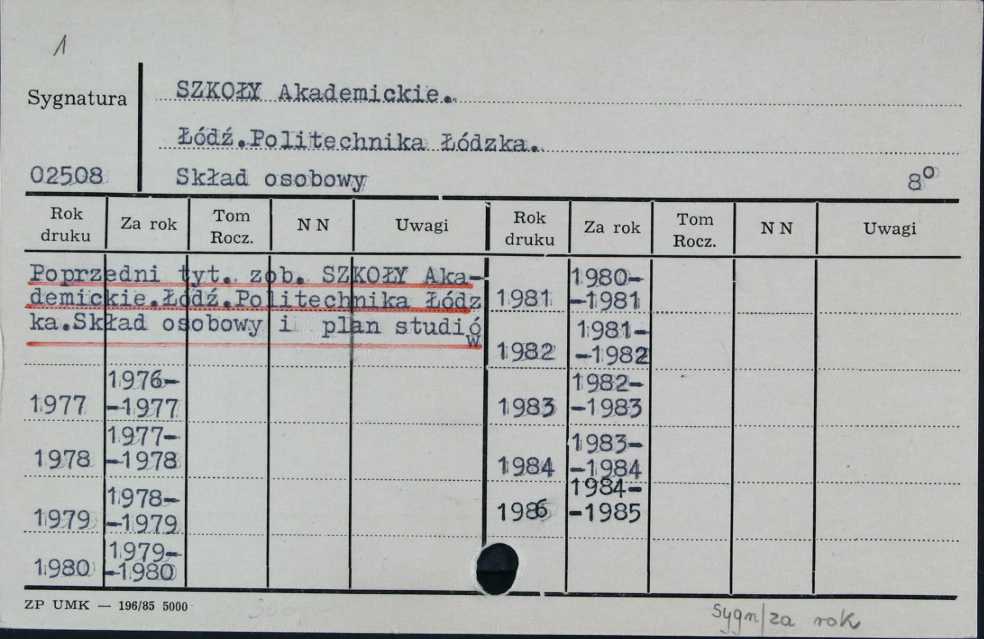 1
Sygnatura
SZKOŁY Akademickie.
Łódź.Politechnika Łódzka.
02508
Skład osobowy
8°
Rok druku Za rok Tom Rocz. N N Uwagi Rok druku Za rok Tom Rocz. N N Uwagi
Poprzedni tyt. zob. SZKOŁY Aka-
demickie.Łódź.Politechnika Łódz
ka.Skład osobowy i plan studió
w
1977 1976-
-1977
1978 1977-
-1978
1979 1978-
-1979
1980 1979-
-1980
1981 1980-
-1981
1982 1981-
-1982
1983 1982-
-1983
1984 1983-
-1984
1986 1984-
-1985
ZP UMK — 196/85 5000
sygn/za rok